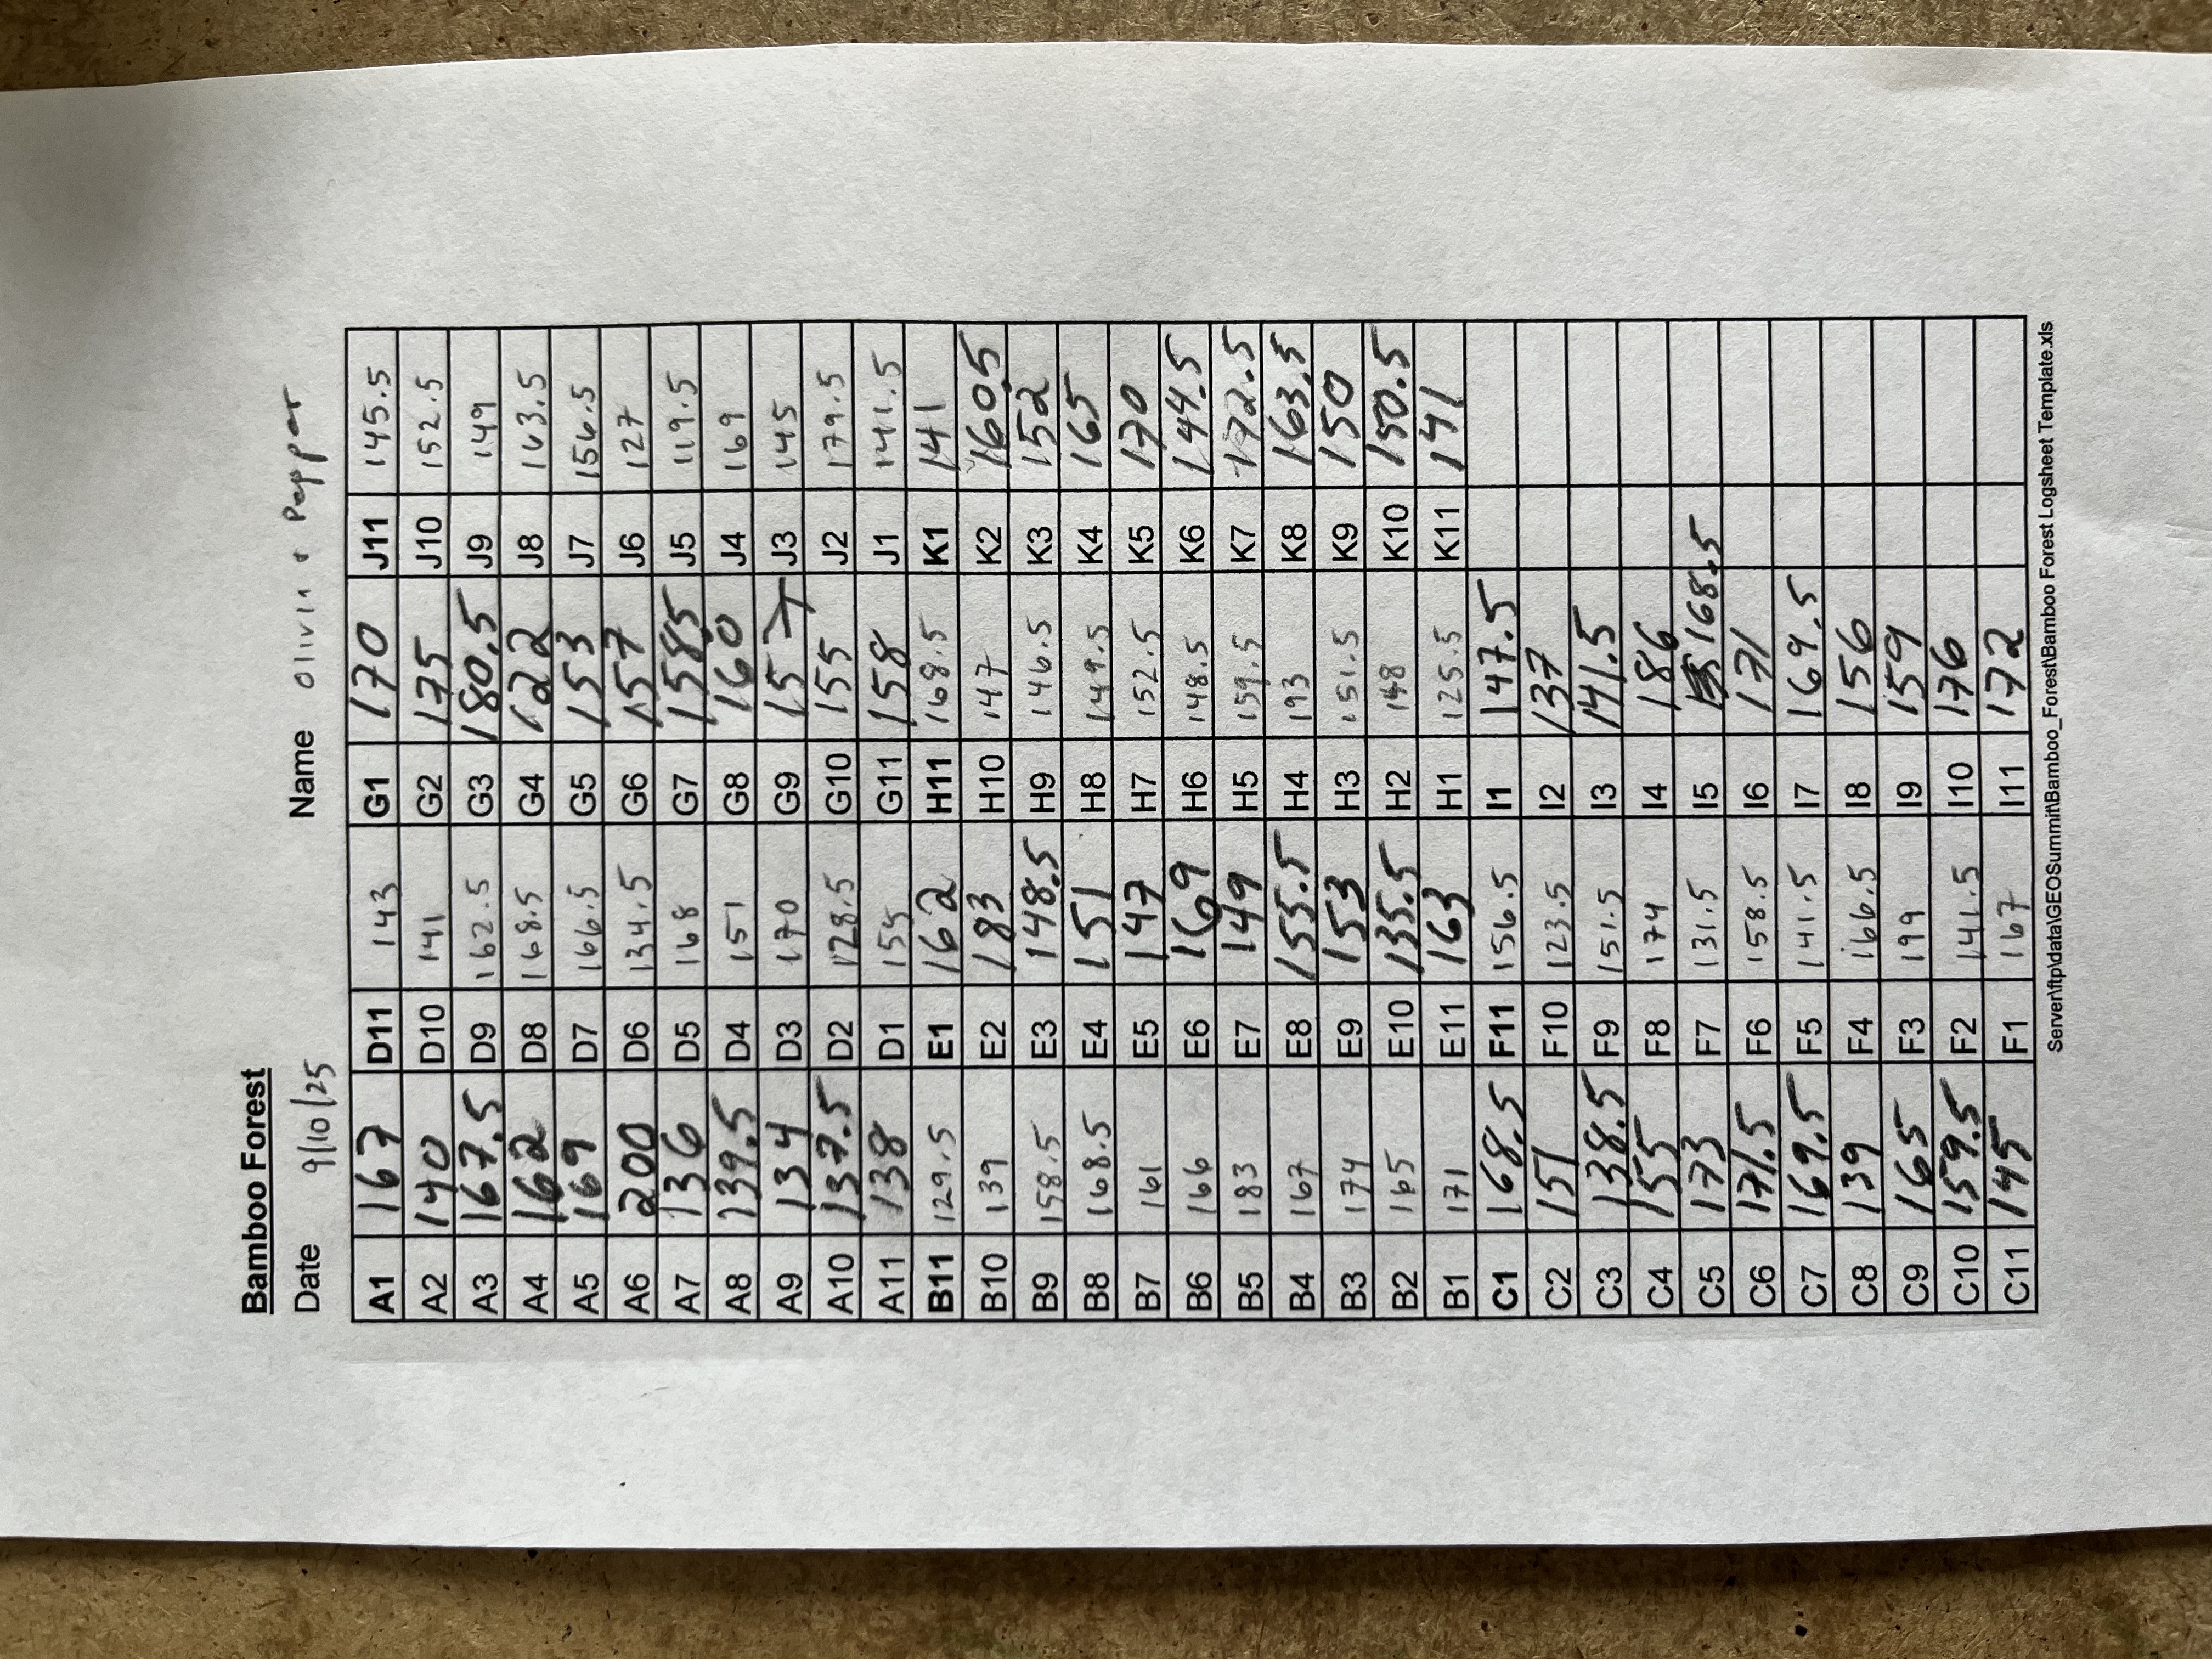 Bamboo Forest
Date 9/10/25 Name Olivia & Pepper
A1 167 D11 143 G1 170 J11 145.5
A2 140 D10 141 G2 175 J10 152.5
A3 167.5 D9 162.5 G3 180.5 J9 149
A4 162 D8 168.5 G4 122 J8 163.5
A5 169 D7 166.5 G5 153 J7 156.5
A6 200 D6 134.5 G6 157 J6 127
A7 136 D5 168 G7 158.5 J5 119.5
A8 139.5 D4 151 G8 160 J4 169
A9 134 D3 170 G9 157 J3 145
A10 137.5 D2 128.5 G10 155 J2 179.5
A11 138 D1 155 G11 158 J1 141.5
B11 129.5 E1 162 H11 168.5 K1 141
B10 139 E2 183 H10 147 K2 160.5
B9 158.5 E3 148.5 H9 146.5 K3 152
B8 168.5 E4 151 H8 149.5 K4 165
B7 161 E5 147 H7 152.5 K5 170
B6 166 E6 169 H6 148.5 K6 144.5
B5 183 E7 149 H5 159.5 K7 172.5
B4 167 E8 155.5 H4 193 K8 163.5
B3 174 E9 153 H3 151.5 K9 150
B2 165 E10 135.5 H2 148 K10 150.5
B1 171 E11 163 H1 125.5 K11 141
C1 168.5 F11 156.5 I1 147.5
C2 151 F10 123.5 I2 137
C3 138.5 F9 151.5 I3 141.5
C4 155 F8 174 I4 186
C5 173 F7 131.5 I5 168.5
C6 171.5 F6 158.5 I6 171
C7 169.5 F5 141.5 I7 169.5
C8 139 F4 166.5 I8 156
C9 165 F3 199 I9 159
C10 159.5 F2 141.5 I10 176
C11 145 F1 167 I11 172
Server\ftp\data\GEOSummit\Bamboo_Forest\Bamboo Forest Logsheet Template.xls